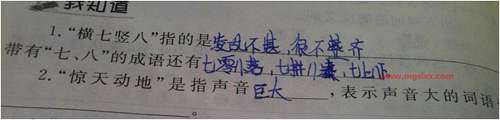 我知道
1.“横七竖八”指的是变及不甚,很不整齐
带有“七、八”的成语还有七零八落,七拼八凑,七上八下
www.mgslxx.com
2.“惊天动地”是指声音巨大,表示声音大的词语
。